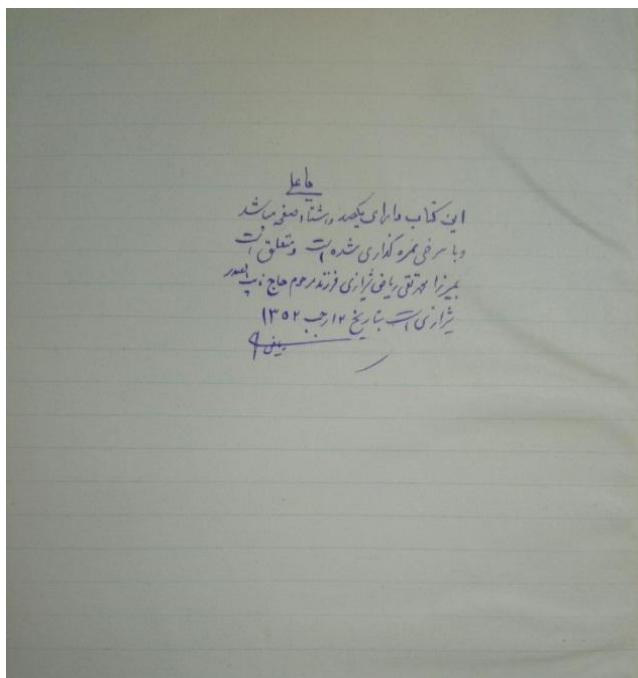 یا علی
این کتاب دارای یکصد و هشتاد صفحه میباشد
و با سرخی نمره گذاری شده است و متعلق است
بمیرزا محمد تقی ریاضی شیرازی فرزند مرحوم حاج نایب الصدر
شیرازی است بتاریخ ۱۲ رجب ۱۳۵۲